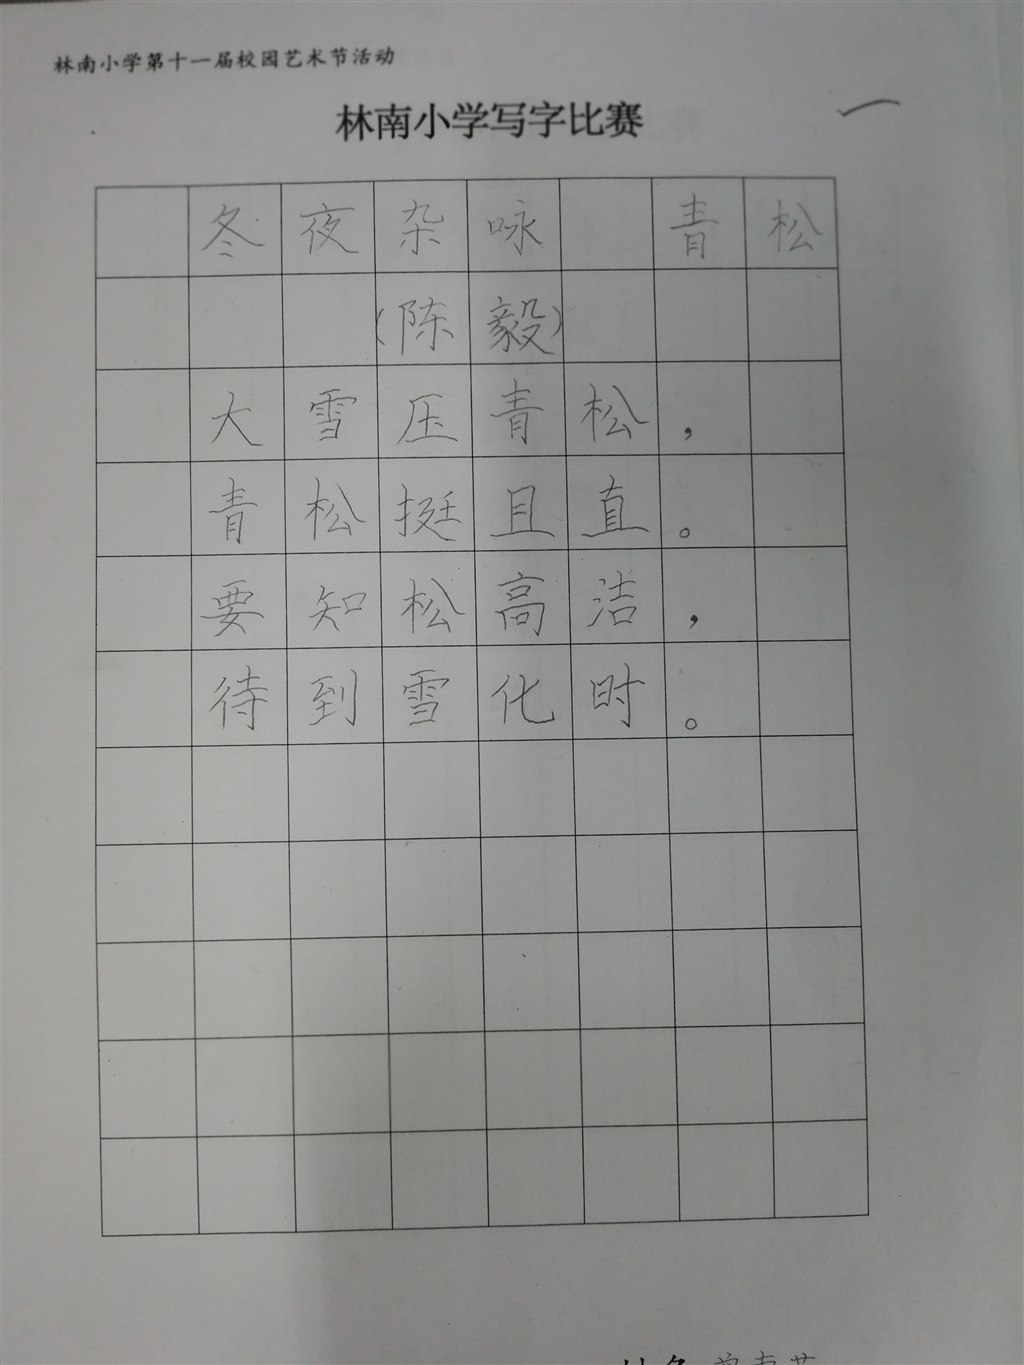 林南小学第十一届校园艺术节活动
林南小学写字比赛
冬夜杂咏 青松
(陈毅)
大雪压青松，
青松挺且直。
要知松高洁，
待到雪化时。